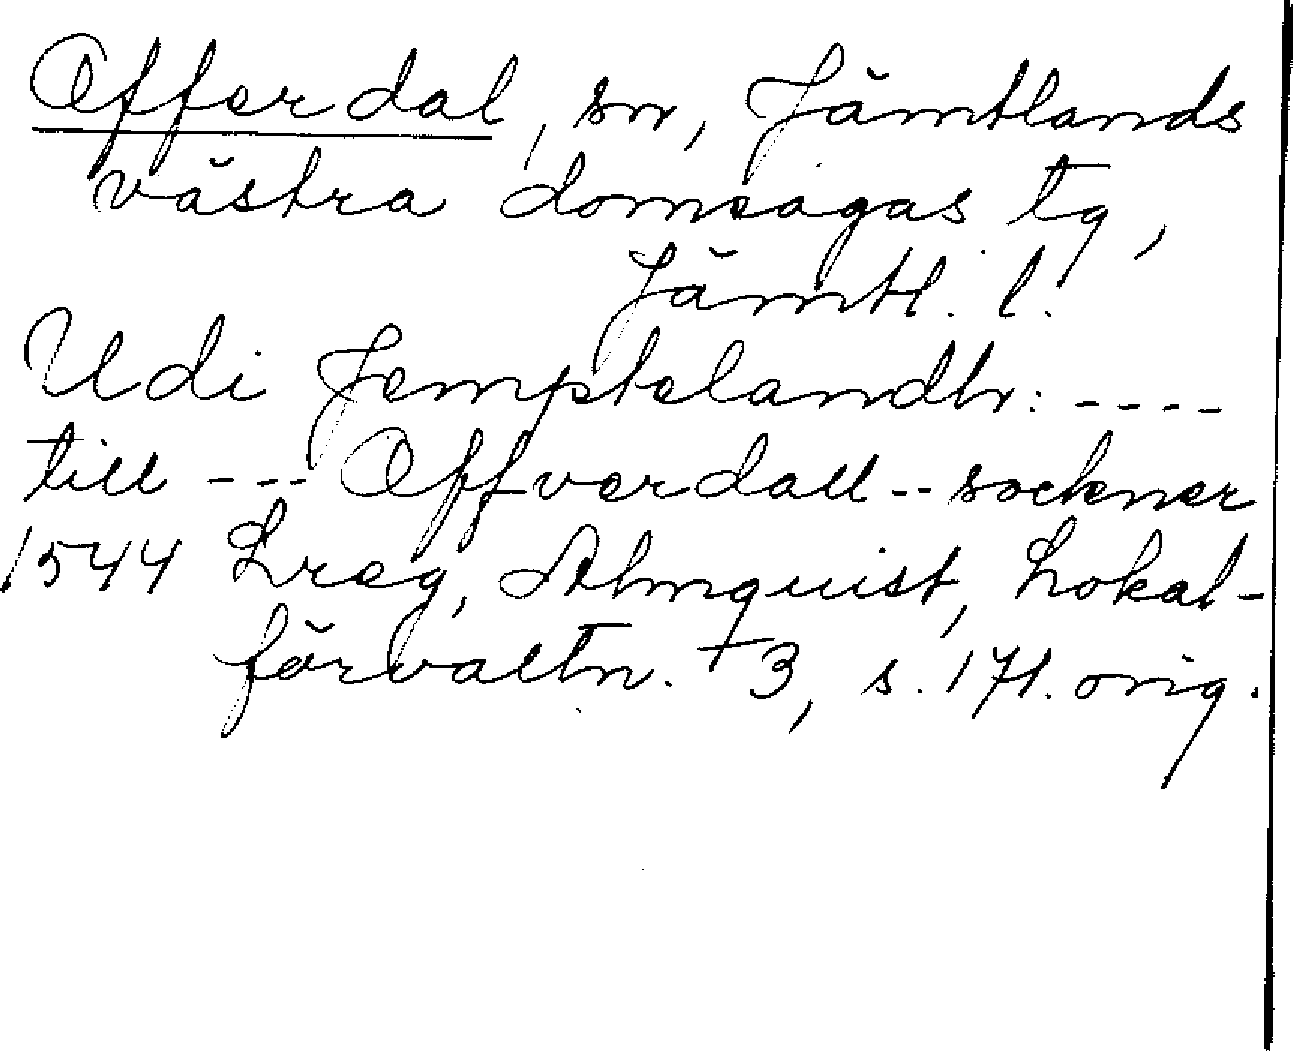 Offerdal, sn, Jämtlands
västra domsagas tg,
Jämtl. l.
Udi Jemptelandh: ----
till --- Offverdall -- sockner
1544 Lreg, Almquist, Lokal-
förvaltn. + 3, s. 171. orig.